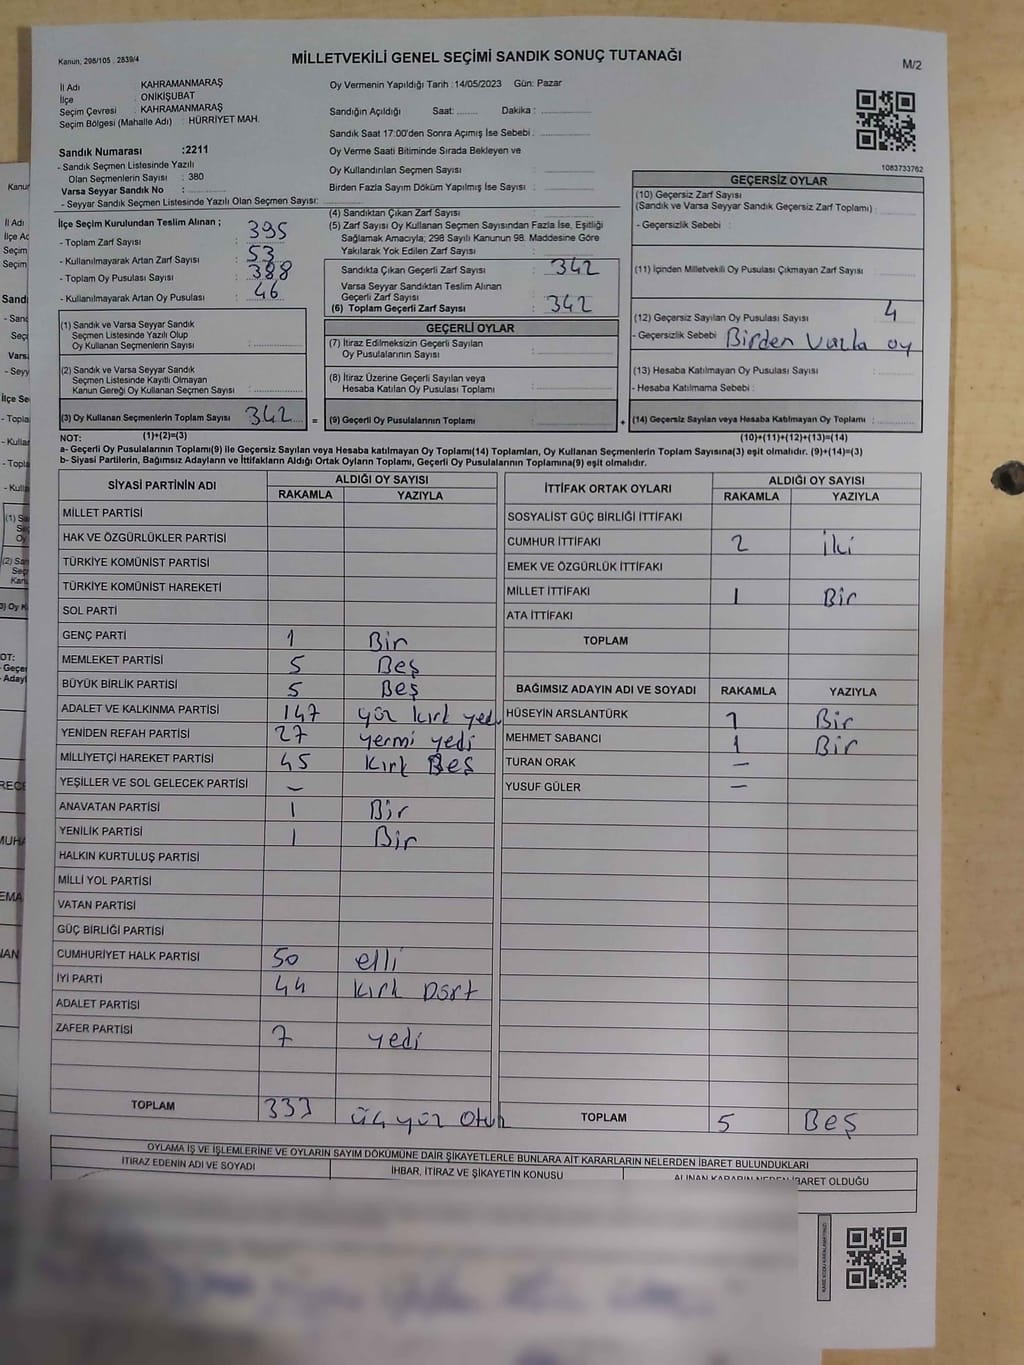 Kanun, 298/105 . 2839/4
MİLLETVEKİLİ GENEL SEÇİMİ SANDIK SONUÇ TUTANAĞI
M/2
İl Adı : KAHRAMANMARAŞ
İlçe : ONİKİŞUBAT
Seçim Çevresi : KAHRAMANMARAŞ
Seçim Bölgesi (Mahalle Adı) : HÜRRİYET MAH.
Sandık Numarası :2211
- Sandık Seçmen Listesinde Yazılı
Olan Seçmenlerin Sayısı : 380
Varsa Seyyar Sandık No :
- Seyyar Sandık Seçmen Listesinde Yazılı Olan Seçmen Sayısı:
Oy Vermenin Yapıldığı Tarih :14/05/2023 Gün: Pazar
Sandığın Açıldığı Saat: Dakika :
Sandık Saat 17:00'den Sonra Açımış İse Sebebi :
Oy Verme Saati Bitiminde Sırada Bekleyen ve
Oy Kullandırılan Seçmen Sayısı :
Birden Fazla Sayım Döküm Yapılmış İse Sayısı :
1083733762
İlçe Seçim Kurulundan Teslim Alınan ;
- Toplam Zarf Sayısı : 395
- Kullanılmayarak Artan Zarf Sayısı : 53
- Toplam Oy Pusulası Sayısı : 388
- Kullanılmayarak Artan Oy Pusulası : 46
(1) Sandık ve Varsa Seyyar Sandık
Seçmen Listesinde Yazılı Olup
Oy Kullanan Seçmenlerin Sayısı :
(2) Sandık ve Varsa Seyyar Sandık
Seçmen Listesinde Kayıtlı Olmayan
Kanun Gereği Oy Kullanan Seçmen Sayısı :
(3) Oy Kullanan Seçmenlerin Toplam Sayısı : 342
(4) Sandıktan Çıkan Zarf Sayısı :
(5) Zarf Sayısı Oy Kullanan Seçmen Sayısından Fazla İse, Eşitliği
Sağlamak Amacıyla; 298 Sayılı Kanunun 98. Maddesine Göre
Yakılarak Yok Edilen Zarf Sayısı :
Sandıkta Çıkan Geçerli Zarf Sayısı : 342
Varsa Seyyar Sandıktan Teslim Alınan
Geçerli Zarf Sayısı :
(6) Toplam Geçerli Zarf Sayısı : 342
GEÇERLİ OYLAR
(7) İtiraz Edilmeksizin Geçerli Sayılan
Oy Pusulalarının Sayısı :
(8) İtiraz Üzerine Geçerli Sayılan veya
Hesaba Katılan Oy Pusulaları Toplamı :
= (9) Geçerli Oy Pusulalarının Toplamı :
GEÇERSİZ OYLAR
(10) Geçersiz Zarf Sayısı
(Sandık ve Varsa Seyyar Sandık Geçersiz Zarf Toplamı) :
- Geçersizlik Sebebi :
(11) İçinden Milletvekili Oy Pusulası Çıkmayan Zarf Sayısı :
(12) Geçersiz Sayılan Oy Pusulası Sayısı : 4
- Geçersizlik Sebebi : Birden Vazla oy
(13) Hesaba Katılmayan Oy Pusulası Sayısı :
- Hesaba Katılmama Sebebi :
+ (14) Geçersiz Sayılan veya Hesaba Katılmayan Oy Toplamı :
NOT: (1)+(2)=(3)
(10)+(11)+(12)+(13)=(14)
a- Geçerli Oy Pusulaların Toplamı(9) ile Geçersiz Sayılan veya Hesaba katılmayan Oy Toplamı(14) Toplamları, Oy Kullanan Seçmenlerin Toplam Sayısına(3) eşit olmalıdır. (9)+(14)=(3)
b- Siyasi Partilerin, Bağımsız Adayların ve İttifakların Aldığı Ortak Oyların Toplamı, Geçerli Oy Pusulalarının Toplamına(9) eşit olmalıdır.
SİYASİ PARTİNİN ADI
ALDIĞI OY SAYISI
RAKAMLA YAZIYLA
MİLLET PARTİSİ
HAK VE ÖZGÜRLÜKLER PARTİSİ
TÜRKİYE KOMÜNİST PARTİSİ
TÜRKİYE KOMÜNİST HAREKETİ
SOL PARTİ
GENÇ PARTİ 1 Bir
MEMLEKET PARTİSİ 5 Beş
BÜYÜK BİRLİK PARTİSİ 5 Beş
ADALET VE KALKINMA PARTİSİ 147 yüz kırk yedi
YENİDEN REFAH PARTİSİ 27 yermi yedi
MİLLİYETÇİ HAREKET PARTİSİ 45 kırk Beş
YEŞİLLER VE SOL GELECEK PARTİSİ -
ANAVATAN PARTİSİ 1 Bir
YENİLİK PARTİSİ 1 Bir
HALKIN KURTULUŞ PARTİSİ
MİLLİ YOL PARTİSİ
VATAN PARTİSİ
GÜÇ BİRLİĞİ PARTİSİ
CUMHURİYET HALK PARTİSİ 50 elli
İYİ PARTİ 44 kırk Dört
ADALET PARTİSİ
ZAFER PARTİSİ 7 yedi
TOPLAM 333 üç yüz
İTTİFAK ORTAK OYLARI
ALDIĞI OY SAYISI
RAKAMLA YAZIYLA
SOSYALİST GÜÇ BİRLİĞİ İTTİFAKI
CUMHUR İTTİFAKI 2 iki
EMEK VE ÖZGÜRLÜK İTTİFAKI
MİLLET İTTİFAKI 1 Bir
ATA İTTİFAKI
TOPLAM
BAĞIMSIZ ADAYIN ADI VE SOYADI RAKAMLA YAZIYLA
HÜSEYİN ARSLANTÜRK 1 Bir
MEHMET SABANCI 1 Bir
TURAN ORAK -
YUSUF GÜLER -
TOPLAM 5 Beş
OYLAMA İŞ VE İŞLEMLERİNE VE OYLARIN SAYIM DÖKÜMÜNE DAİR ŞİKAYETLERLE BUNLARA AİT KARARLARIN NELERDEN İBARET BULUNDUKLARI
İTİRAZ EDENİN ADI VE SOYADI
İHBAR, İTİRAZ VE ŞİKAYETİN KONUSU
ALINAN KARARIN NEDEN İBARET OLDUĞU